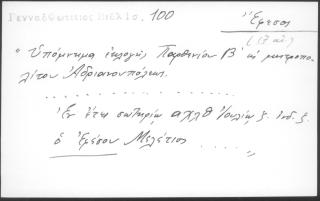 Γενναδ 100
Ἔφεσος
" Ὑπόμνημα ἐκλογῆς Παρθενίου Β' ὡς μητροπο-
λίτου Ἀδριανουπόλεως.
. . . . . . . . . . . . . . .
Ἐν ἔτει σωτηρίῳ αχλθ Ἰουλίῳ ζ. Ἰνδ. ζ.
ὁ Ἐφέσου Μελέτιος . . . . . "